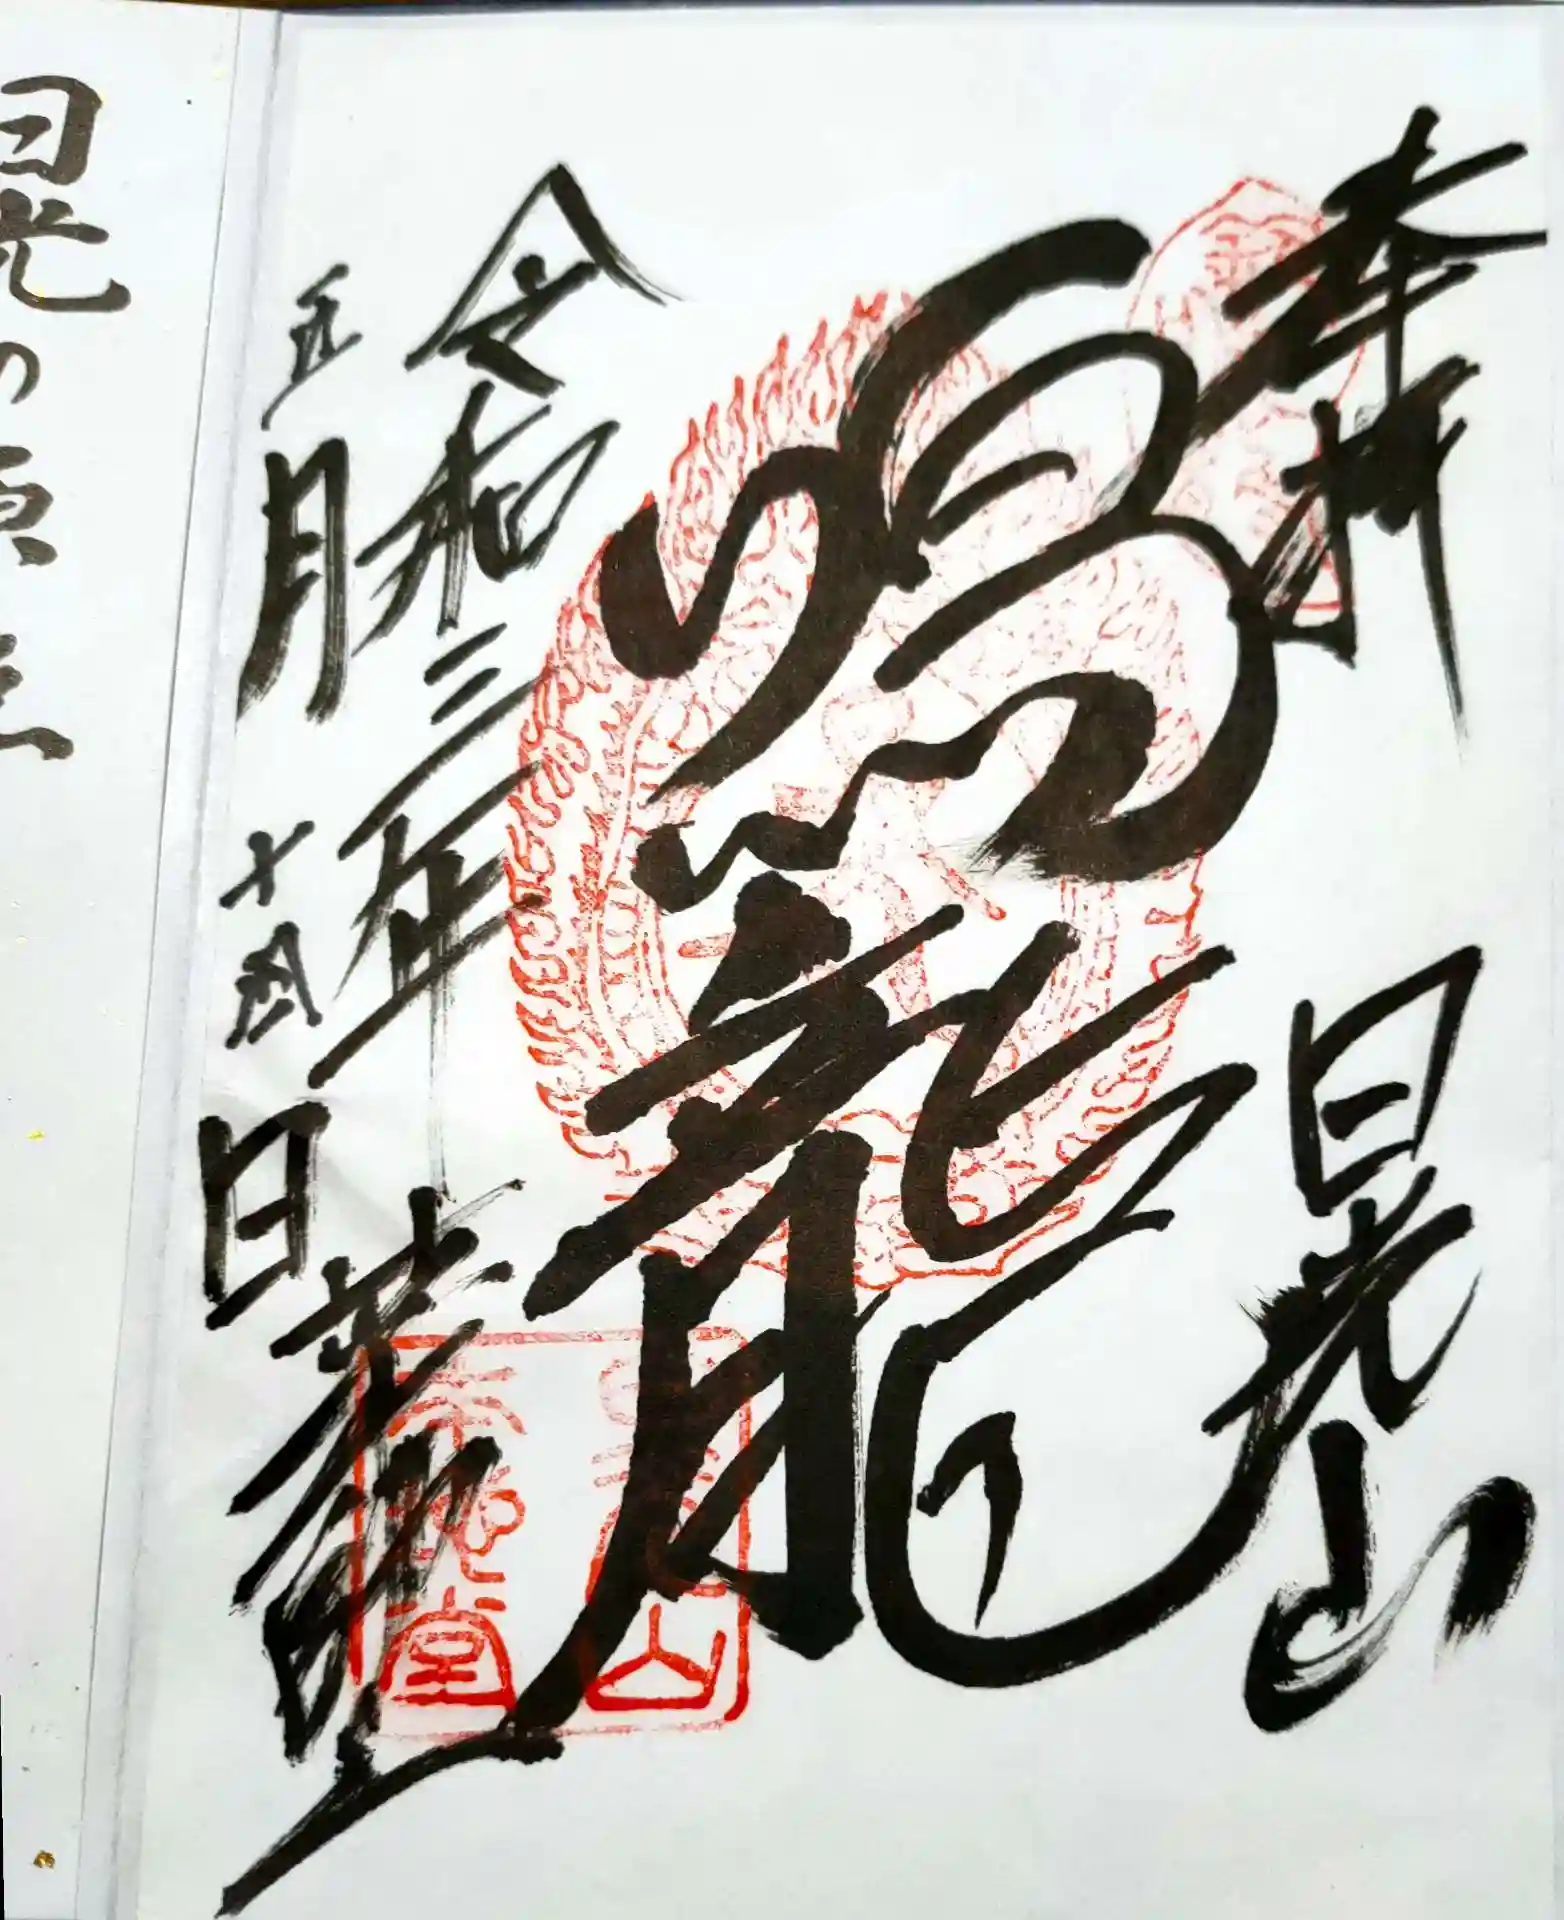 奉拝
日光山
鳴龍
薬師堂
令和三年
五月十日
日光の原点